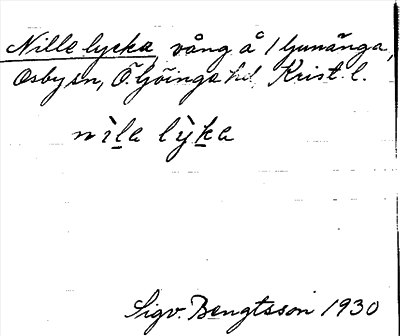 Nille lycka, vång å Ljunänga,
Osby sn, Ö Göinge hd, Krist. l.
nìla lỳka
Sigv. Bengtsson 1930